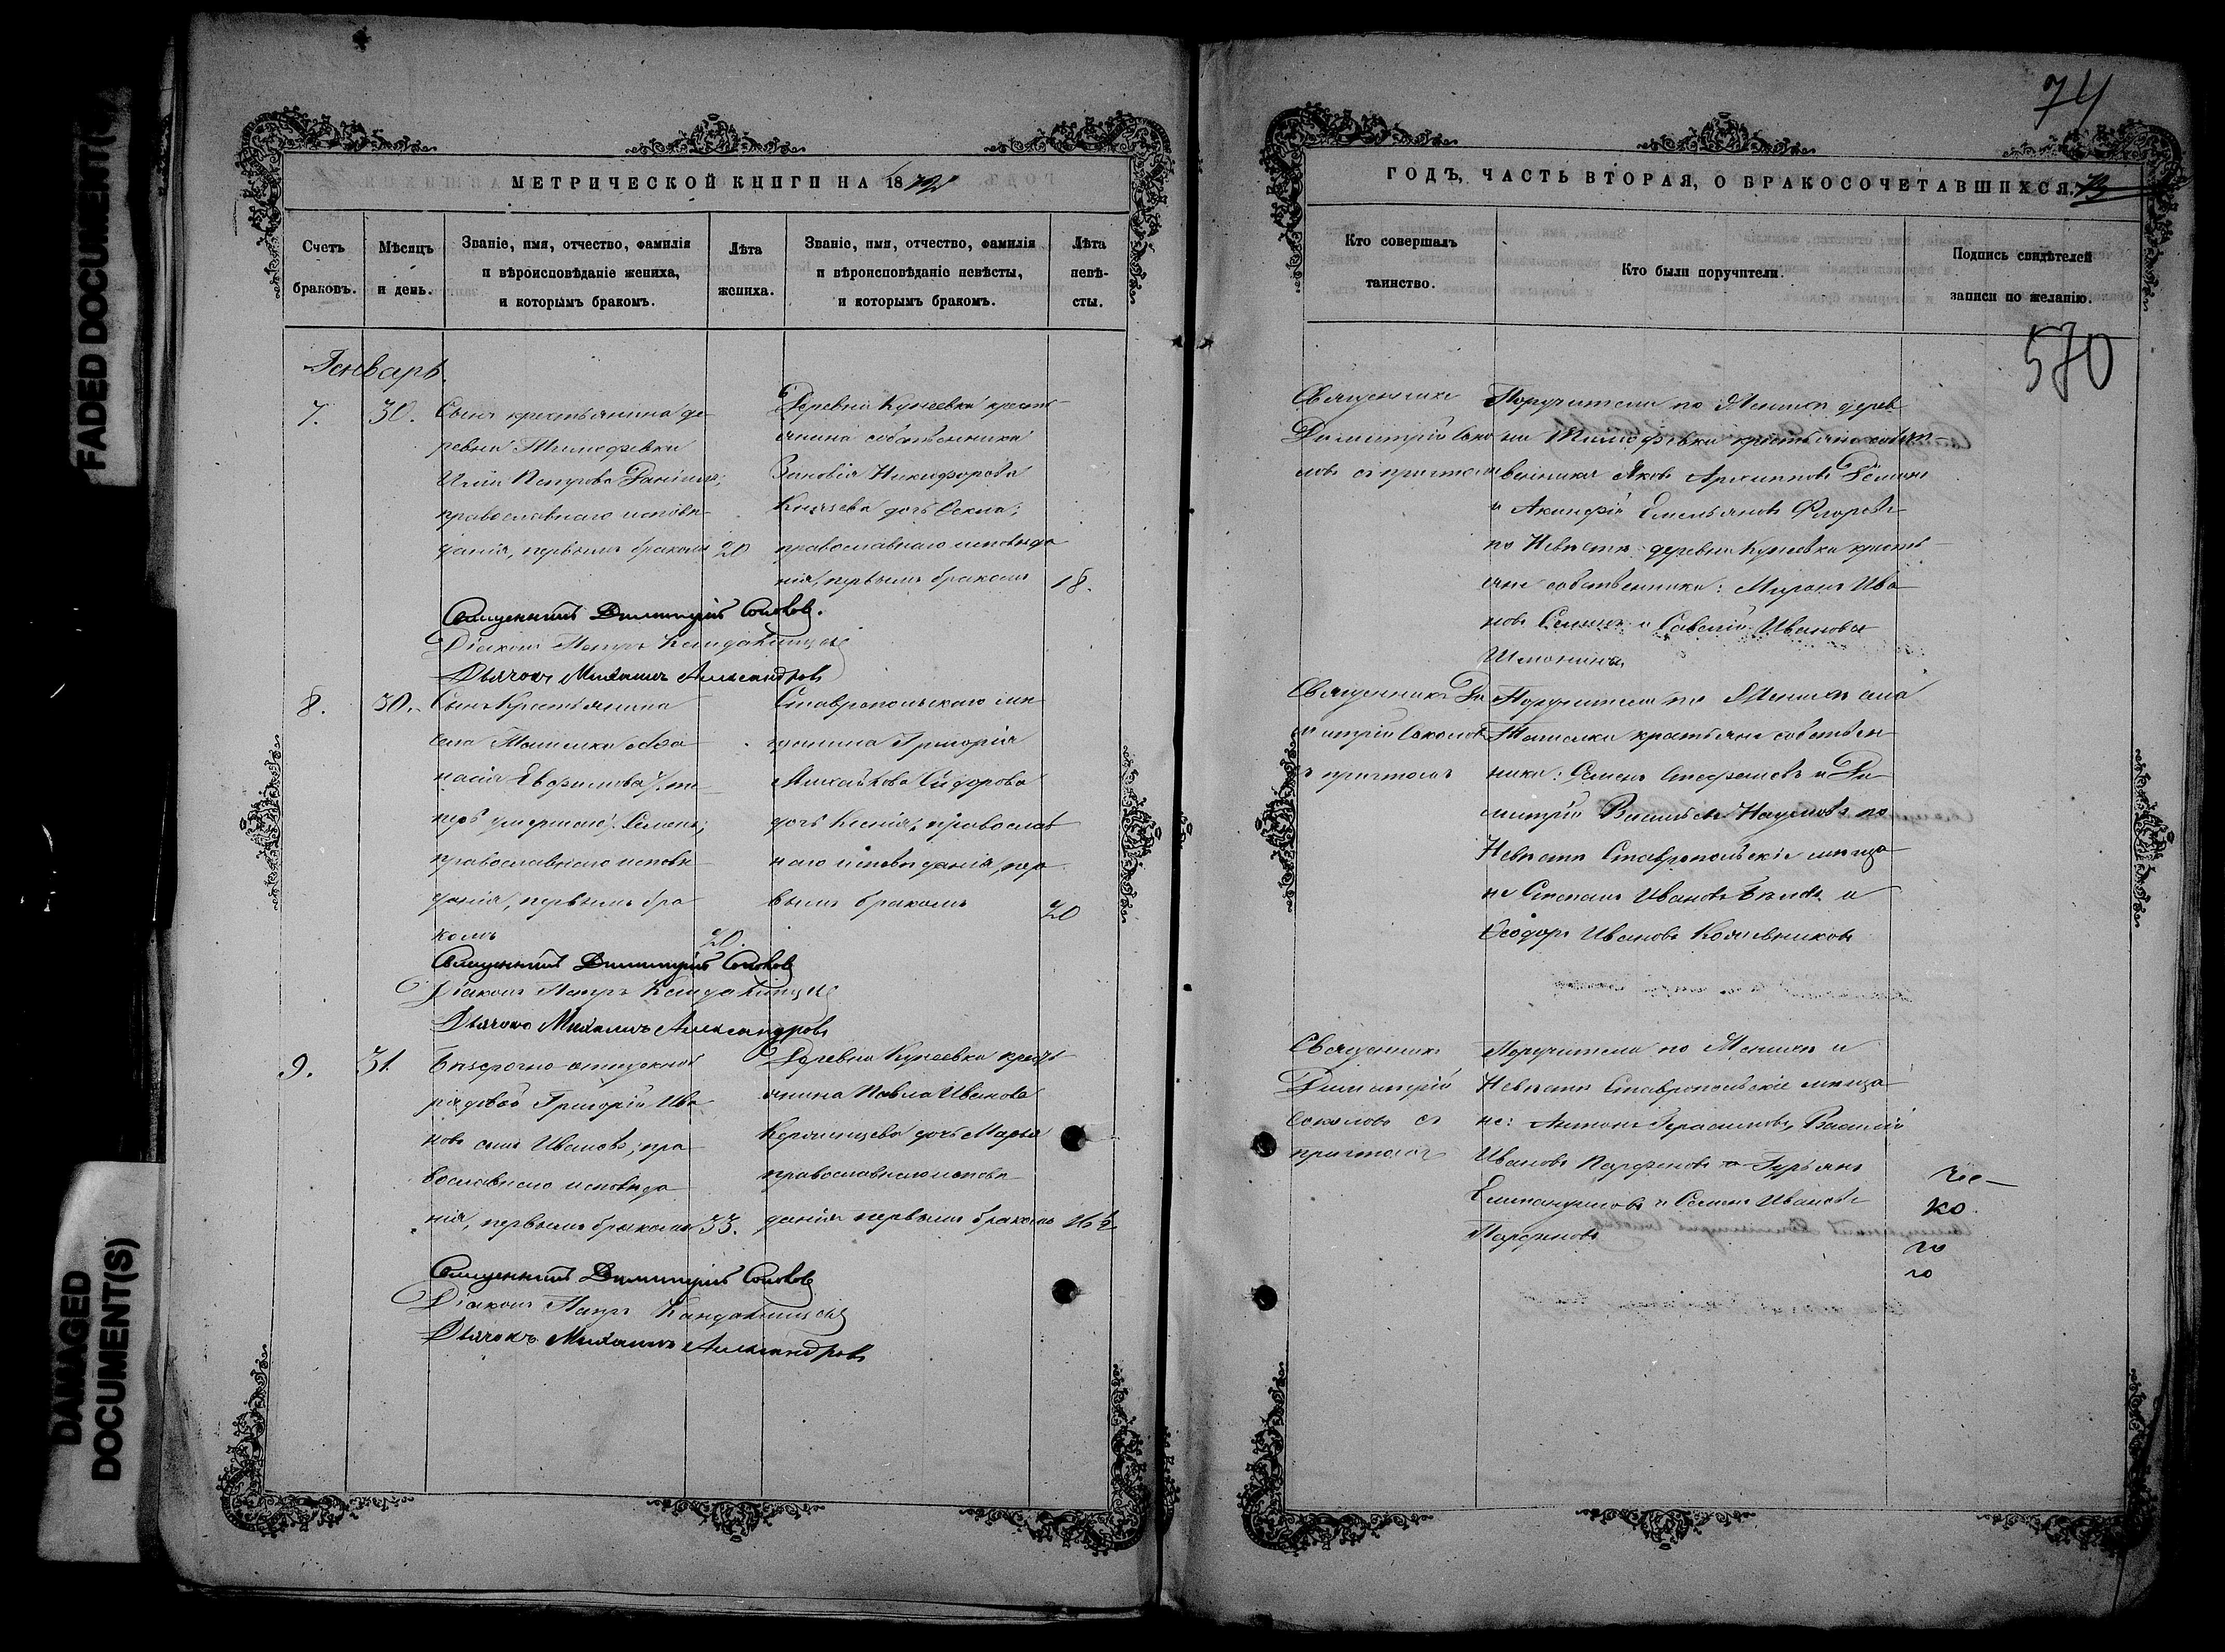 FADED DOCUMENT(S)
DAMAGED
DOCUMENT(S)
МЕТРИЧЕСКОЙ КНИГИ НА 1872
Счетъ браковъ.
Мѣсяцъ и день.
Званіе, имя, отчество, фамилія и вѣроисповѣданіе жениха, и которымъ бракомъ.
Лѣта жениха.
Званіе, имя, отчество, фамилія и вѣроисповѣданіе невѣсты, и которымъ бракомъ.
Лѣта невѣ-
сты.
Январь.
7.
30.
Сынъ крестьянина де
ревни Тимофевки
Петрова
православнаго исповѣ
данія, первымъ бракомъ
20
Деревни Кунеевки кресть
янина собственника
Зиновія Никифорова
Князева дочь
православнаго исповѣда
нія, первымъ бракомъ
18.
Священникъ Димитрій Соколов.
Діаконъ Петръ
Дьячокъ Михаилъ Александровъ
8.
30.
Сынъ Крестьянина
села Ташелки Афа
насія Евфимова
православнаго исповѣ
данія, первымъ бра
комъ
20.
Ставропольскаго мѣ
щанина Григорія
Михайлова Сидорова
дочь Ксенія, православ
наго исповѣданія, пер
вымъ бракомъ
20
Священникъ Димитрій Соколов
Діаконъ Петръ
Дьячокъ Михаилъ Александровъ
9.
31.
Безсрочно отпускной
рядовой Григорій Ива
новъ сынъ Ивановъ, пра
вославнаго исповѣда
нія, первымъ бракомъ
33.
Деревни Кунеевки кресть
янина Павла Иванова
дочь Марья
православнаго исповѣ
данія первымъ бракомъ
16½
Священникъ Димитрій Соколов
Діаконъ Петръ
Дьячокъ Михаилъ Александровъ
74
ГОДЪ, ЧАСТЬ ВТОРАЯ, О БРАКОСОЧЕТАВШИХСЯ.
73
Кто совершалъ
таинство.
Кто были поручители.
Подпись свидѣтелей
записи по желанію.
570
Священникъ
Димитрій Соко
ловъ съ причтомъ
Поручители по Женихѣ дерев
ни Тимофевки крестьяне собст
венники Яковъ Архиповъ
и Емельяновъ
по Невѣстѣ деревни Кунеевки кресть
яне собственники: Миронъ Ива
новъ и Савелій Ивановъ
Священникъ Ди
митрій Соколовъ
съ причтомъ
Поручители по Женихѣ села
Ташелки крестьяне собствен
ники: Семенъ и Ди
митрій Васильевъ Наумовъ по
Невѣстѣ Ставропольскіе мѣща
не Степанъ Ивановъ и
Ѳеодоръ Ивановъ Кожевниковъ
Священникъ
Димитрій
Соколовъ съ
причтомъ
Поручители по Женихѣ и
Невѣстѣ Ставропольскіе мѣща
не: Антонъ Герасимовъ, Василій
Ивановъ Парфеновъ
и Семенъ Ивановъ
Парфеновъ